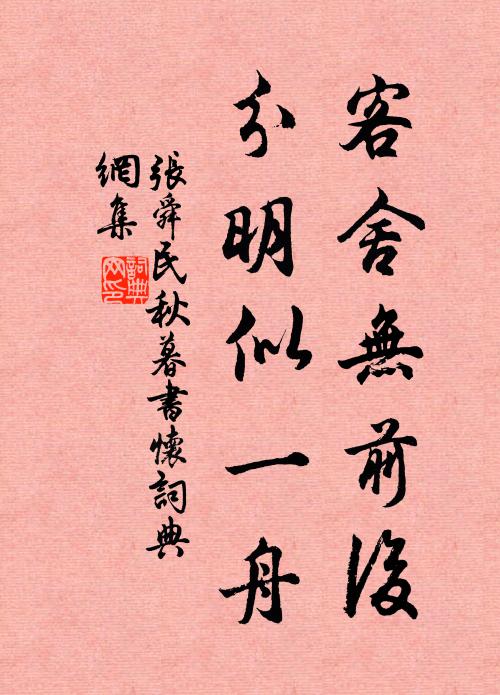 客舍無前後
分明似一舟
張舜民秋暮書懷詞典
網集
詞典
网印